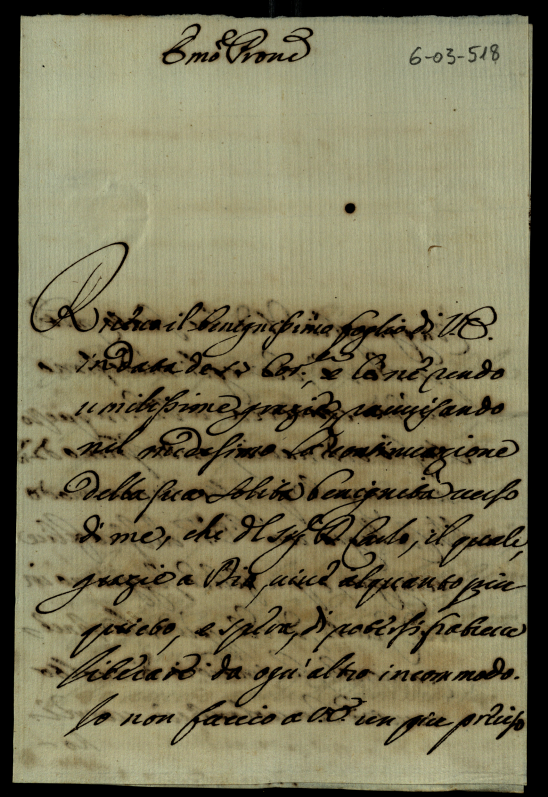 Emo Prone
6-03-518
Ricevo il benignissimo foglio di V.E.
in data de Cor.te, e le ne rendo
umilissime grazie, ravvisando
nel medesimo la continuazione
della sua solita benignità verso
di me, che del Sig.r Carlo, il quale,
grazie a Dio, vive alquanto più
quieto, e spera, di potersi
liberare da ogn'altro incommodo.
Io non faccio a V.E. un più preciso